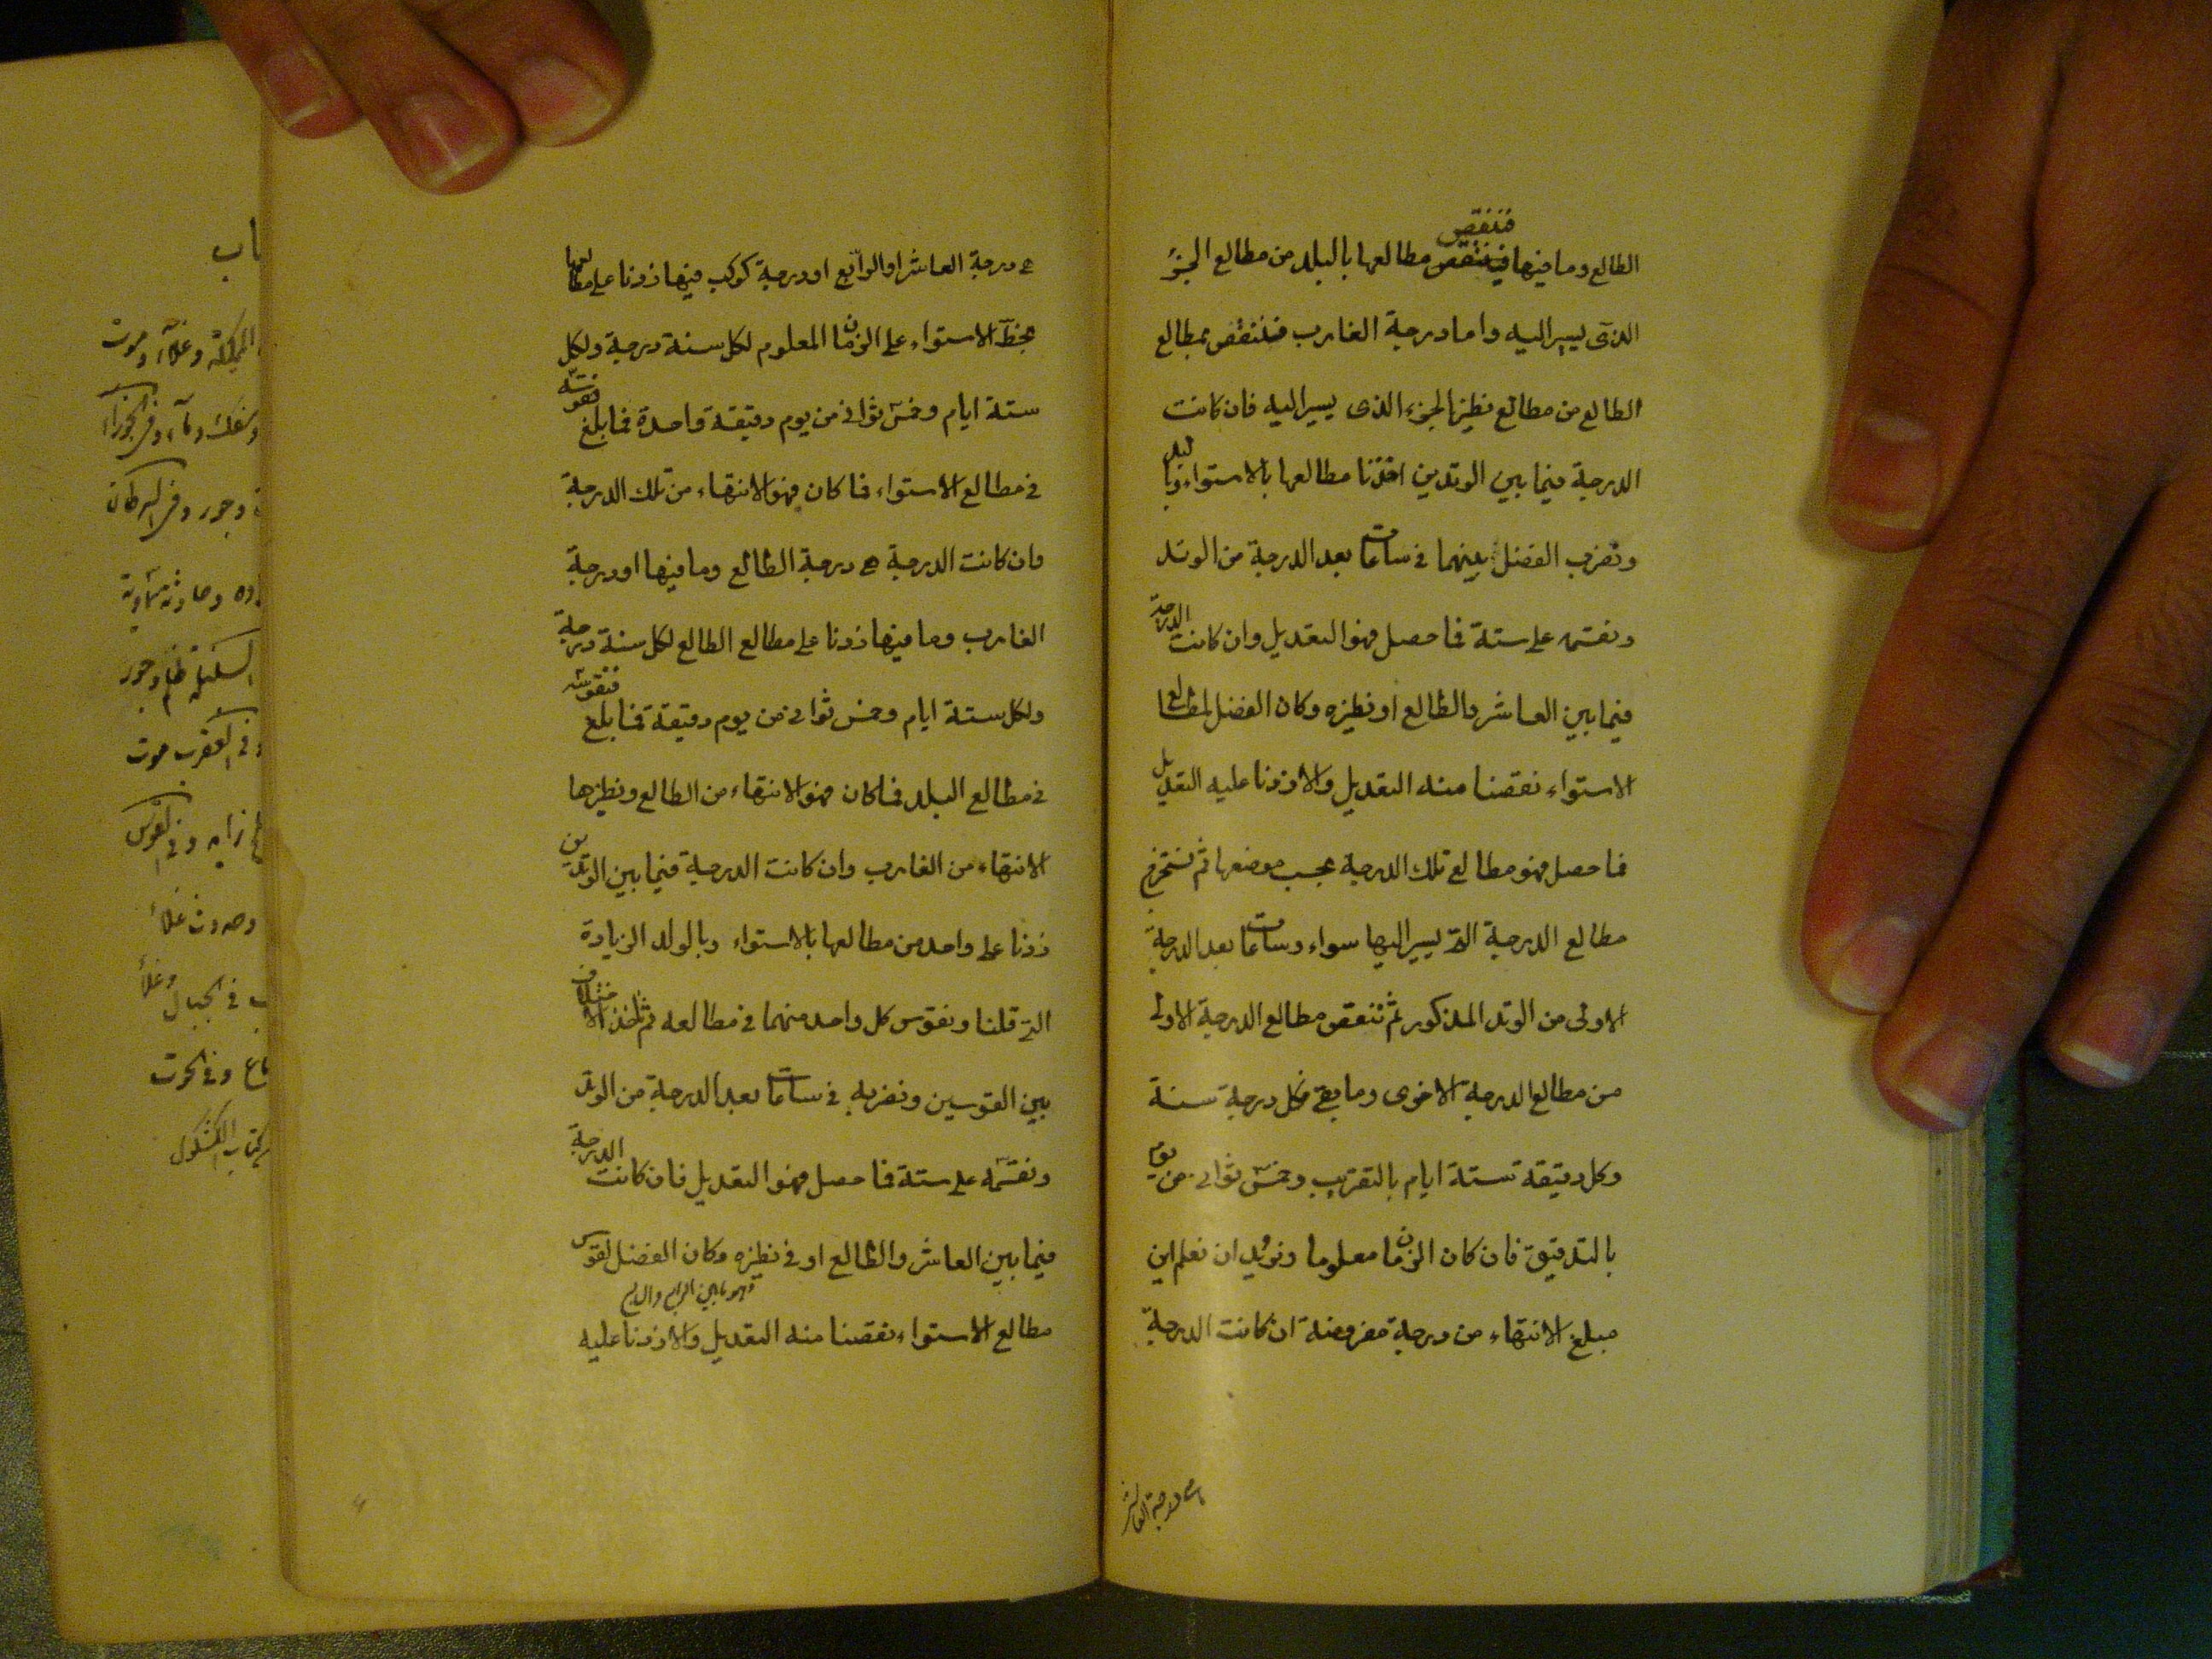 فننقص
الطالع وما فيها فينقص مطالعها بالبلد من مطالع الجزء
الذى يسير اليه واما درجة الغارب فننقص مطالع
الطالع من مطالع نظير الجزء الذى يسير اليه فان كانت
الدرجة فيما بين الوتدين اخذنا مطالعها بالاستواء وبالبلد
ونضرب الفضل بينهما فى ساعات بعد الدرجة من الوتد
ونقسمه على ستة فما حصل فهو التعديل وان كانت الدرجة
فيما بين العاشر والطالع او نظيره وكان الفضل لمطالع
الاستواء نقصنا منه التعديل والا زدنا عليه التعديل
فما حصل فهو مطالع تلك الدرجة بحسب موضعها ثم نستخرج
مطالع الدرجة التى يسير اليها سواء وساعات بعد الدرجة
الاولى من الوتد المذكور ثم ننقص مطالع الدرجة الاولى
من مطالع الدرجة الاخرى وما بقى فكل درجة سنة
وكل دقيقة ستة ايام بالتقريب وخمس ثوانى من يوم
بالتدقيق فان كان الزمان معلوما ونريد ان نعلم اين
مبلغ الانتهاء من درجة مفروضة ان كانت الدرجة
هى درجة العاشر
هى درجة العاشر او الرابع او درجة كوكب فيها زدنا على مطالعها
بخط الاستواء على الزمان المعلوم لكل سنة درجة ولكل
ستة ايام وخمس ثوانى من يوم دقيقة واحدة فما بلغ فقوسه
فى مطالع الاستواء فما كان فهو الانتهاء من تلك الدرجة
وان كانت الدرجة هى درجة الطالع وما فيها او درجة
الغارب وما فيها زدنا على مطالع الطالع لكل سنة درجة
ولكل ستة ايام وخمس ثوانى من يوم دقيقة فما بلغ فنقوسه
فى مطالع البلد فما كان فهو الانتهاء من الطالع ونظيرها
الانتهاء من الغارب وان كانت الدرجة فيما بين الوتدين
زدنا على واحد من مطالعها بالاستواء وبالولد الزيادة
التى قلنا ونقوس كل واحد منهما فى مطالعه ثم ناخذ الاختلاف
بين القوسين ونضربه فى ساعات بعد الدرجة من الوتد
ونقسمه على ستة فما حصل فهو التعديل فان كانت الدرجة
فيما بين العاشر والطالع او فى نظيره وكان الفضل لقوس
وهو ما بين الرابع
مطالع الاستواء نقصنا منه التعديل والا زدنا عليه
وغلاء وموت
وفى السرطان
وجور
وفى العقرب موت
وفى القوس
وحدوث غلاء
فى الجبال وغلاء
وفى الحوت
الكشكول